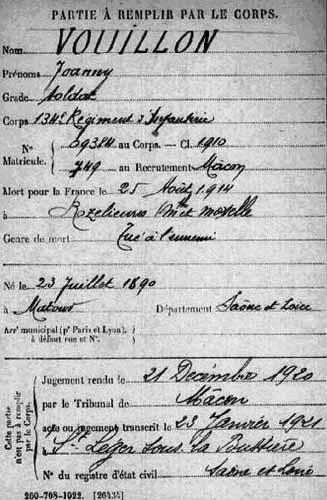 PARTIE À REMPLIR PAR LE CORPS.
Nom VOUILLON
Prénoms Joanny
Grade soldat
Corps 134e Régiment d'Infanterie
N° Matricule. 09384 au Corps. — Cl. 1910
749 au Recrutement Mâcon
Mort pour la France le 25 Août 1914
à Rozelieures Mthe et moselle
Genre de mort Tué à l'ennemi
Né le 23 Juillet 1890
à Matour Département Saône et Loire
Arrt municipal (pr Paris et Lyon), à défaut rue et N°.
Cette partie n'est pas à remplir par le Corps.
Jugement rendu le 21 Décembre 1920
par le Tribunal de Mâcon
acte ou jugement transcrit le 23 Janvier 1921
à St Léger sous la Bussière
Saône et Loire
N° du registre d'état civil
260-708-1922. [26434]